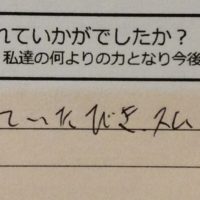 れていかがでしたか?
私達の何よりの力となり今後
ていただき、